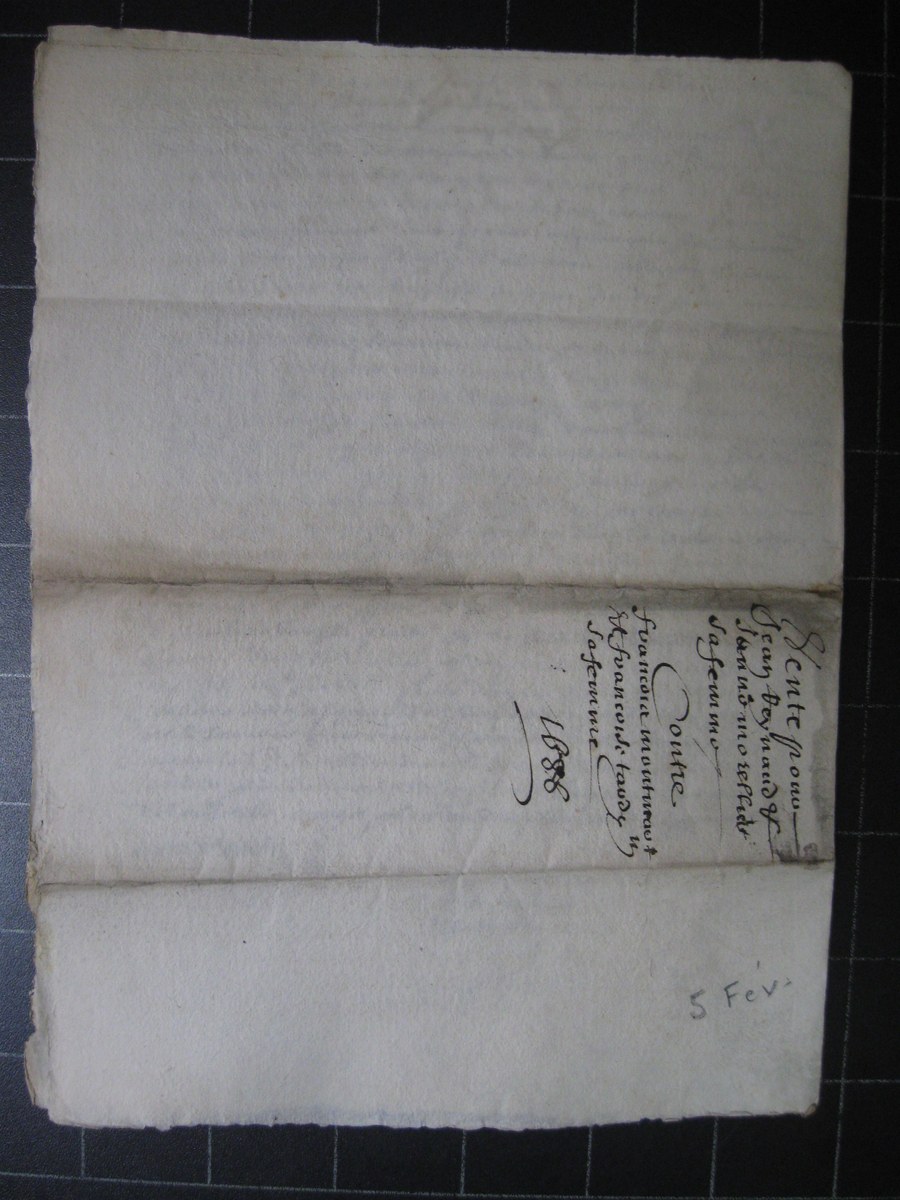 Vente pour
Jean Veynaud &
Jeanne morellet
sa femme
Contre
francois montmeaut
Et francoise
sa femme
1688
5 Fév.